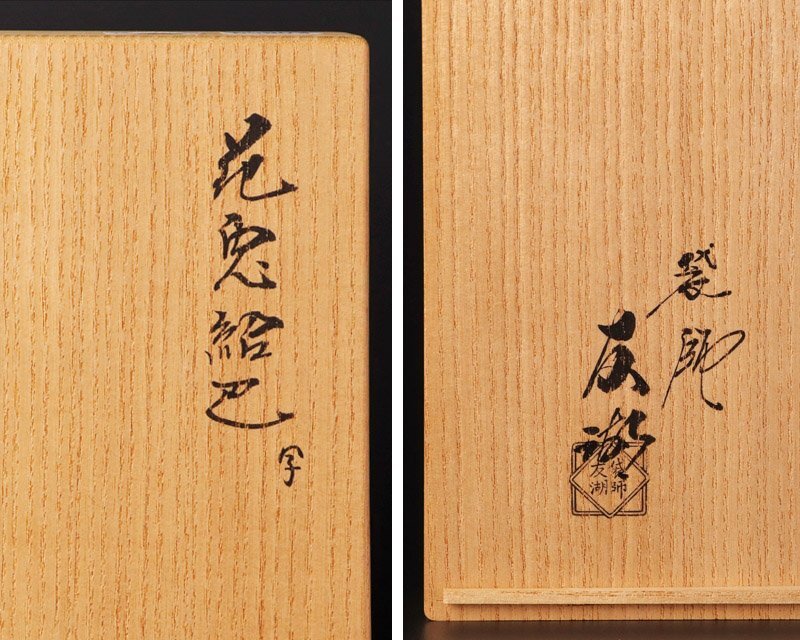 花兎紹巴
写
袋師
友湖
袋師
友湖